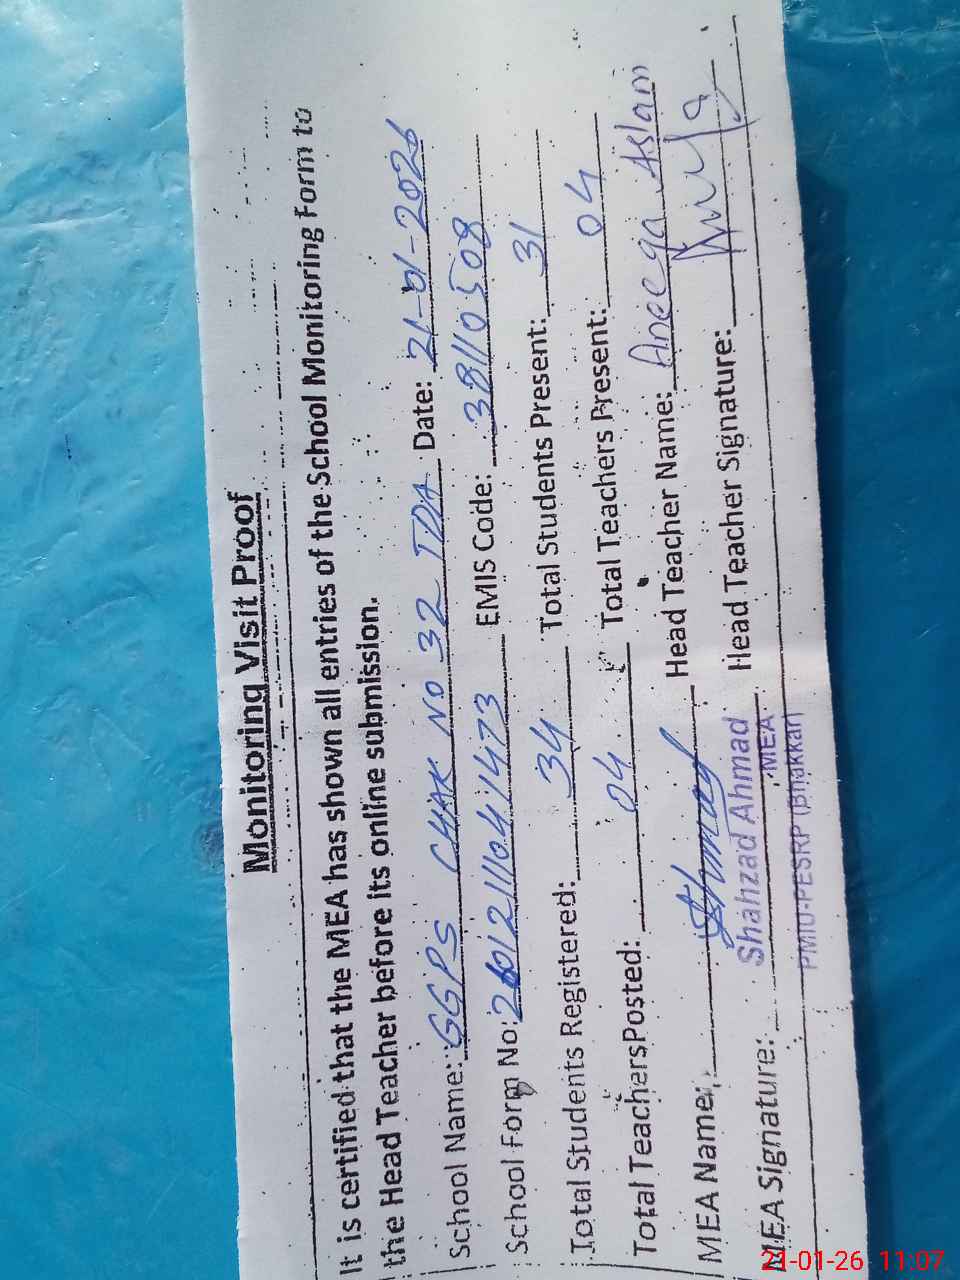 Monitoring Visit Proof
It is certified that the MEA has shown all entries of the School Monitoring Form to
the Head Teacher before its online submission.
School Name: GGPS CHAK NO 32 TDA Date: 21-01-2026
School Form No: 260121110414473 EMIS Code: 38110508
Total Students Registered: 34 Total Students Present: 31
Total Teachers Posted: 04 Total Teachers Present: 04
MEA Name: Head Teacher Name: Aneeqa Aslam
Shahzad Ahmad
MEA Signature: MEA Head Teacher Signature:
PMIU-PESRP (Bhakkar)
21-01-26 11:07